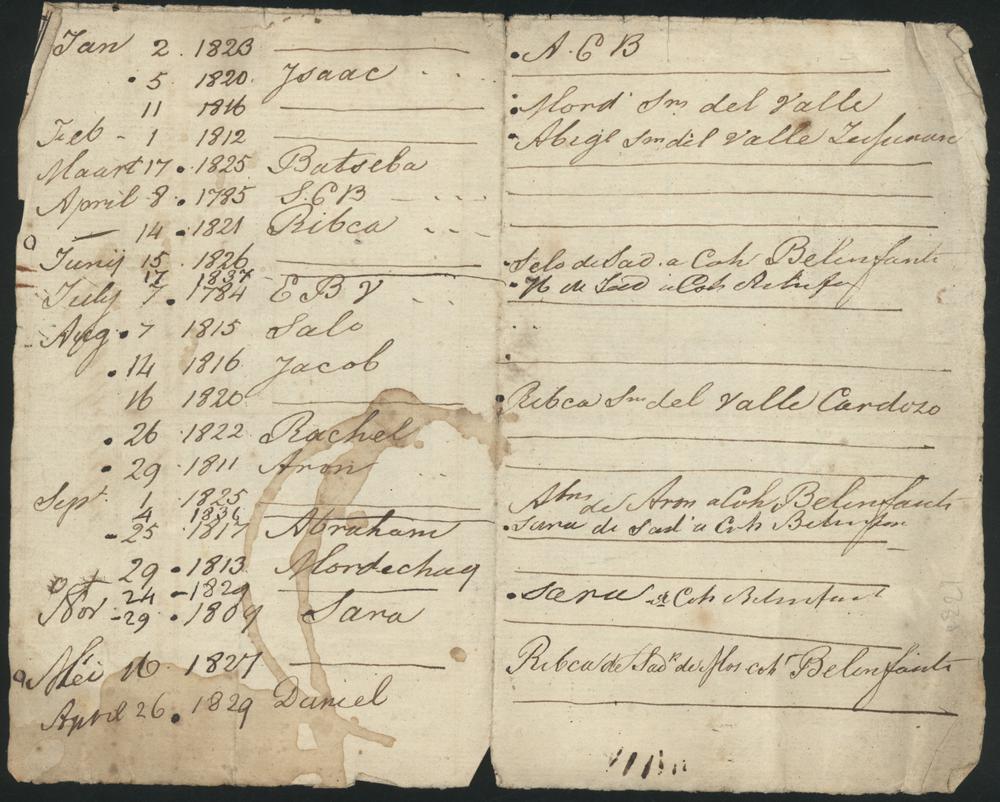 Jan 2 . 1823 A. C B
. 5 . 1820 . Isaac
11 1816 Mord Sn del Valle
Feb - 1 1812 Abigl Sn del Valle
Maart 17 . 1825 Batseba
April 8 . 1785 S. C B
14 . 1821 Ribca
Junij 15 1826 Selo de Sad. a Coh Belinfante
17 1837 de Sad a Coh
July 7 . 1784 E B V
Aug . 7 1815 Salo
. 14 1816 Jacob
16 1820 Ribca Sn del Valle Cardozo
. 26 1822 Rachel
. 29 . 1811 Aron
Sept 1 1825 Abm de Aron a Coh Belinfante
4 1836 Sara de Sad a Coh
- 25 1817 Abraham
29 . 1813 Mordechay
24 - 1829 Sara a Coh Belinfant
Nov - 29 . 1809 Sara
Mei 16 1827 Ribca de Sad de Mos coh Belinfante
April 26 . 1829 Daniel